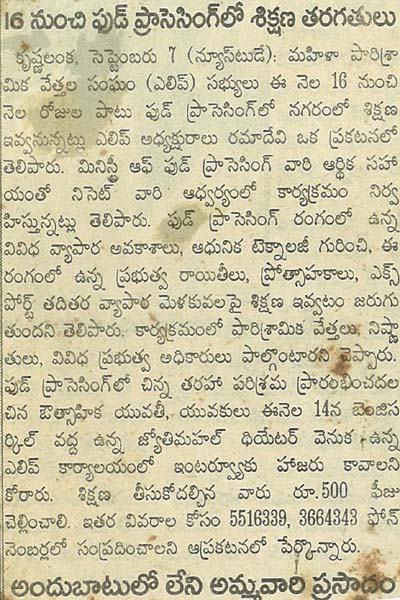 16 నుంచి ఫుడ్ ప్రాసెసింగ్‌లో శిక్షణ తరగతులు
కృష్ణలంక, సెప్టెంబరు 7 (న్యూస్‌టుడే): మహిళా పారిశ్రా
మిక వేత్తల సంఘం (ఎలిప్) సభ్యులు ఈ నెల 16 నుంచి
నెల రోజుల పాటు ఫుడ్ ప్రాసెసింగ్‌లో నగరంలో శిక్షణ
ఇవ్వనున్నట్లు ఎలిప్ అధ్యక్షురాలు రమాదేవి ఒక ప్రకటనలో
తెలిపారు. మినిస్ట్రీ ఆఫ్ ఫుడ్ ప్రాసెసింగ్ వారి ఆర్థిక సహా
యంతో నిసెట్ వారి ఆధ్వర్యంలో కార్యక్రమం నిర్వ
హిస్తున్నట్లు తెలిపారు. ఫుడ్ ప్రాసెసింగ్ రంగంలో ఉన్న
వివిధ వ్యాపార అవకాశాలు, ఆధునిక టెక్నాలజీ గురించి, ఈ
రంగంలో ఉన్న ప్రభుత్వ రాయితీలు, ప్రోత్సాహకాలు, ఎక్స్
పోర్ట్ తదితర వ్యాపార మెళకువలపై శిక్షణ ఇవ్వటం జరుగు
తుందని తెలిపారు. కార్యక్రమంలో పారిశ్రామిక వేత్తలు, నిష్ణా
తులు, వివిధ ప్రభుత్వ అధికారులు పాల్గొంటారని చెప్పారు.
ఫుడ్ ప్రాసెసింగ్‌లో చిన్న తరహా పరిశ్రమ ప్రారంభించదల
చిన ఔత్సాహిక యువతీ, యువకులు ఈనెల 14న బెంజిస
ర్కిల్ వద్ద ఉన్న జ్యోతిమహల్ థియేటర్ వెనుక ఉన్న
ఎలిప్ కార్యాలయంలో ఇంటర్వ్యూకు హాజరు కావాలని
కోరారు. శిక్షణ తీసుకోదల్చిన వారు రూ.500 ఫీజు
చెల్లించాలి. ఇతర వివరాల కోసం 5516339, 3664343 ఫోన్
నెంబర్లలో సంప్రదించాలని ఆప్రకటనలో పేర్కొన్నారు.
అందుబాటులో లేని అమ్మవారి ప్రసాదం